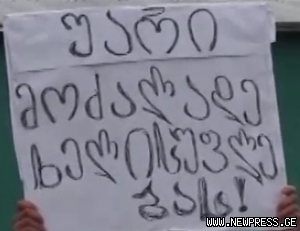 უარი
მოძალადე
ხელისუფლე
ბას!
WWW.NEWPRESS.GE